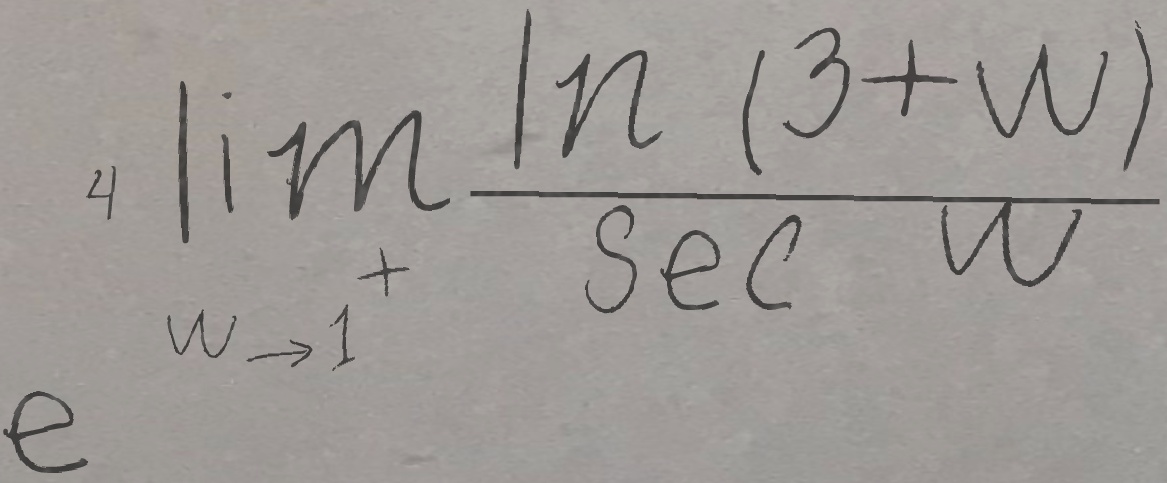 e^{4 \lim_{w \to 1^+} \frac{\ln (3+w)}{\sec w}}